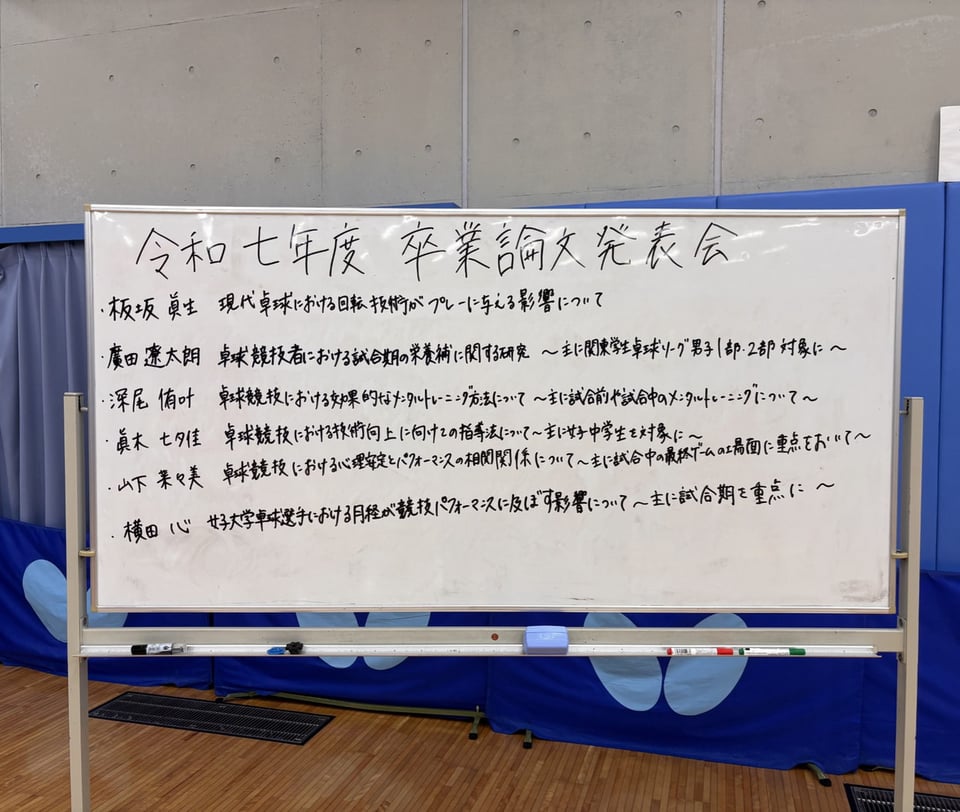 令和七年度 卒業論文発表会
・板坂 眞生 現代卓球における回転技術がプレーに与える影響について
・廣田 遼太朗 卓球競技者における試合期の栄養補に関する研究 ～主に関東学生卓球リーグ男子1部・2部対象に～
・深尾 侑叶 卓球競技における効果的なメンタルトレーニング方法について ～主に試合前や試合中のメンタルトレーニングについて～
・眞木 七夕佳 卓球競技における技術向上に向けての指導法について～主に女子中学生を対象に～
・山下 菜々美 卓球競技における心理安定とパフォーマンスの相関関係について～主に試合中の最終ゲームの場面に重点をおいて～
・横田 心 女子大学卓球選手における月経が競技パフォーマンスに及ぼす影響について～主に試合期を重点に～